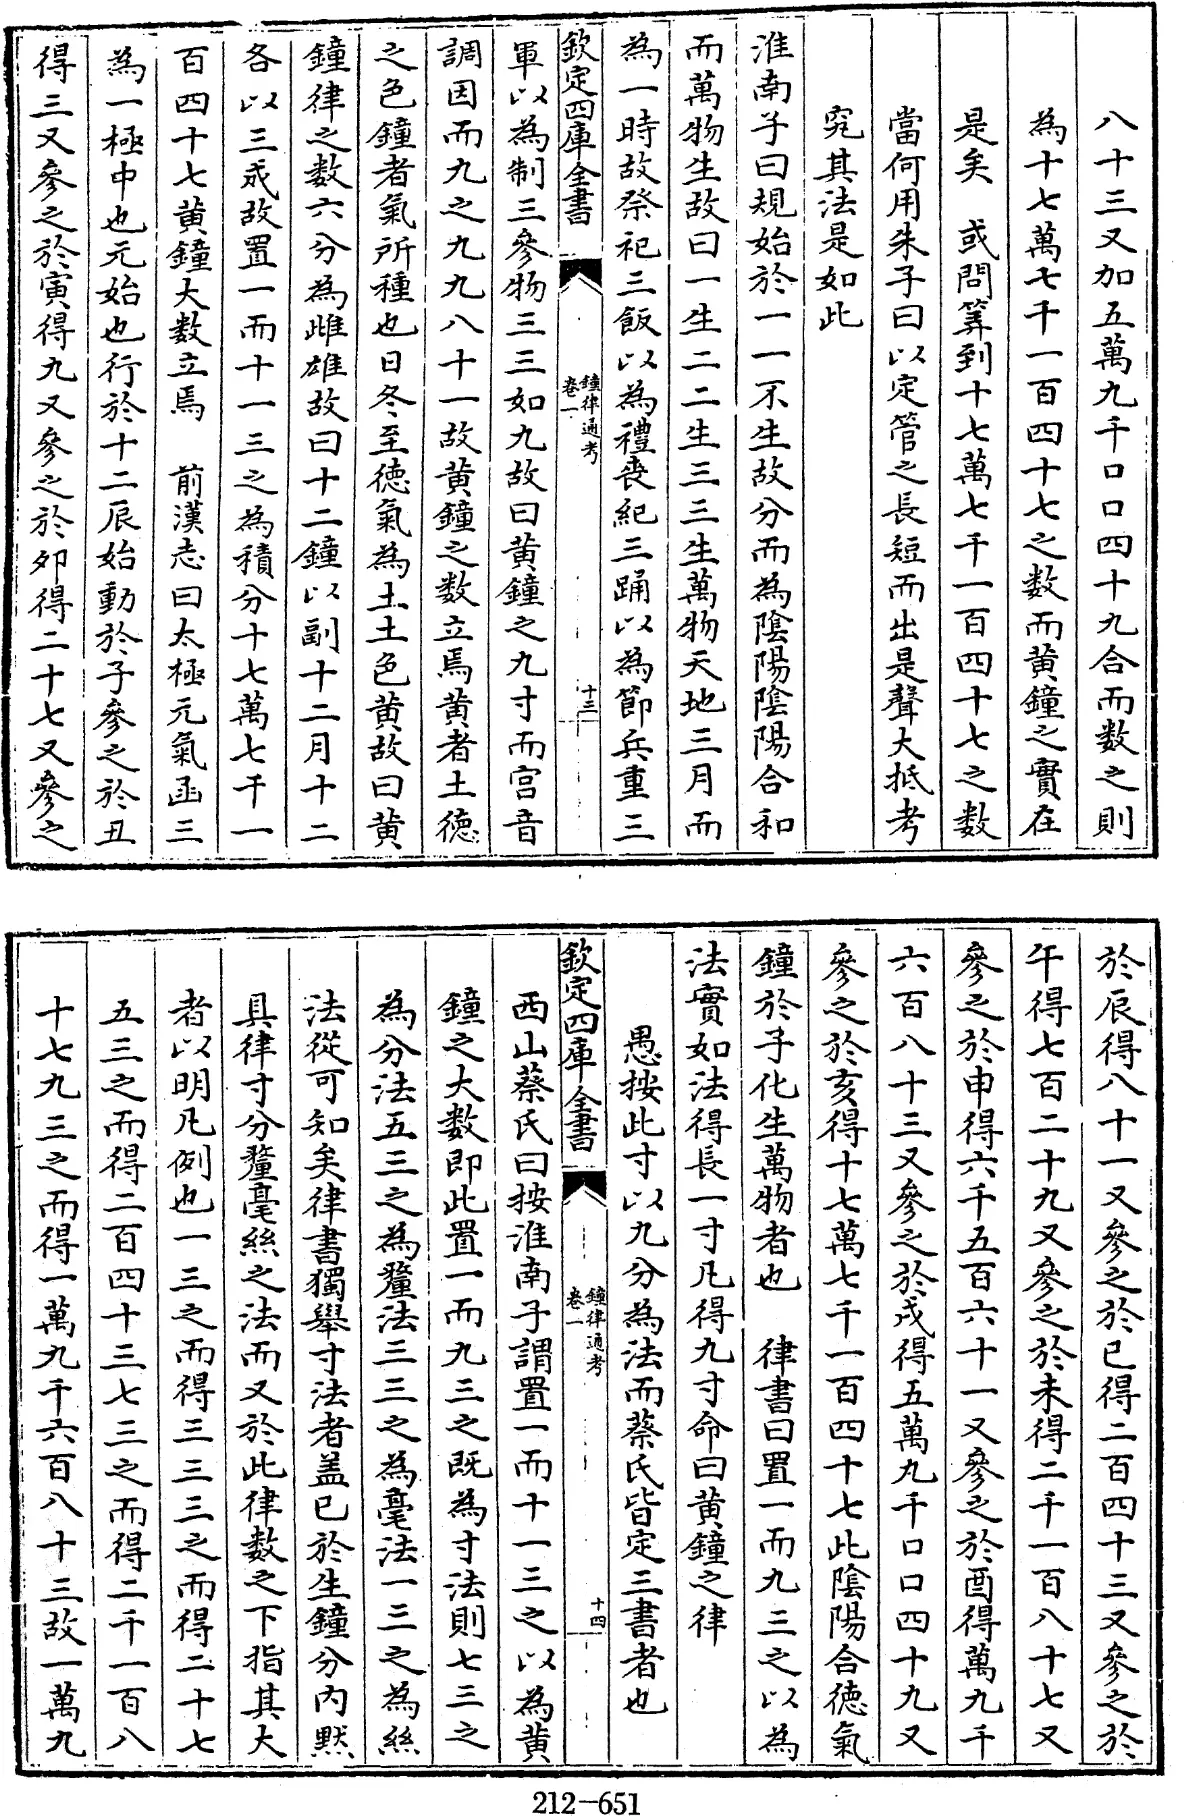 八十三又加五萬九千口口四十九合而数之則
為十七萬七千一百四十七之数而黄鐘之實在
是矣　或問筭到十七萬七千一百四十七之数
當何用朱子曰以定管之長短而出是聲大抵考
究其法是如此
淮南子曰規始於一一不生故分而為陰陽陰陽合和
而萬物生故曰一生二二生三三生萬物天地三月而
為一時故祭祀三飯以為禮喪紀三踊以為節兵重三
欽定四庫全書
鐘律通考
卷一
十三
軍以為制三參物三三如九故曰黄鐘之九寸而宫音
調因而九之九九八十一故黄鐘之数立焉黄者土德
之色鐘者氣所種也日冬至德氣為土土色黄故曰黄
鐘律之数六分為雌雄故曰十二鐘以副十二月十二
各以三成故置一而十一三之為積分十七萬七千一
百四十七黄鐘大数立焉　前漢志曰太極元氣函三
為一極中也元始也行於十二辰始動於子參之於丑
得三又參之於寅得九又參之於卯得二十七又參之
於辰得八十一又參之於巳得二百四十三又參之於
午得七百二十九又參之於未得二千一百八十七又
參之於申得六千五百六十一又參之於酉得萬九千
六百八十三又參之於戌得五萬九千口口四十九又
參之於亥得十七萬七千一百四十七此陰陽合德氣
鐘於子化生萬物者也　律書曰置一而九三之以為
法實如法得長一寸凡得九寸命曰黄鐘之律
愚按此寸以九分為法而蔡氏皆定三書者也
欽定四庫全書
鐘律通考
卷一
十四
西山蔡氏曰按淮南子謂置一而十一三之以為黄
鐘之大数即此置一而九三之既為寸法則七三之
為分法五三之為釐法三三之為毫法一三之為絲
法從可知矣律書獨舉寸法者盖已於生鐘分内黙
具律寸分釐毫絲之法而又於此律数之下指其大
者以明凡例也一三之而得三三三之而得二十七
五三之而得二百四十三七三之而得二千一百八
十七九三之而得一萬九千六百八十三故一萬九
212-651